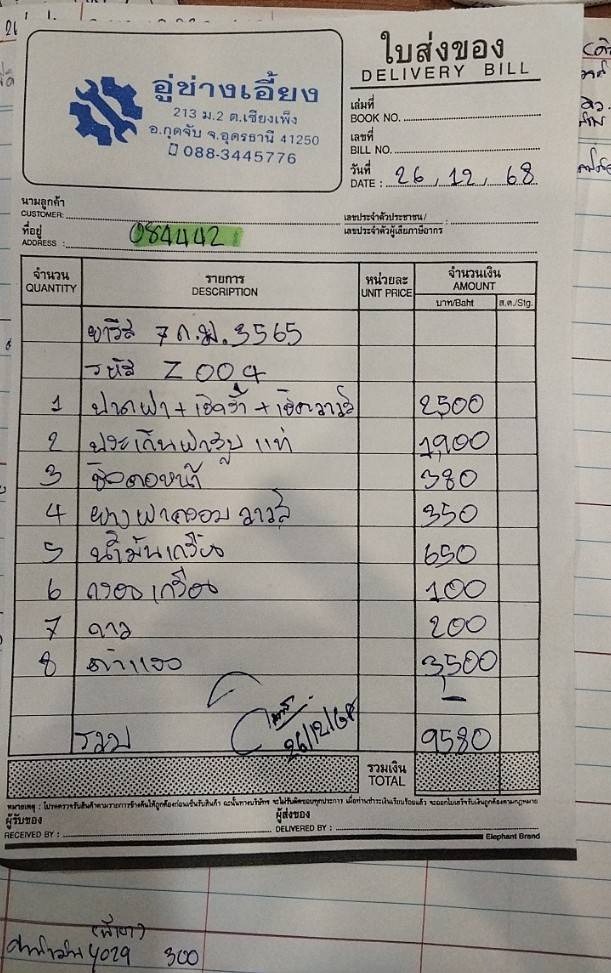 อู่ช่างเอี้ยง
213 ม.2 ต.เชียงเพ็ง
อ.กุดจับ จ.อุดรธานี 41250
088-3445776
ใบส่งของ
DELIVERY BILL
เล่มที่
BOOK NO.
เลขที่
BILL NO.
วันที่
DATE : 26, 12, 68
นามลูกค้า
CUSTOMER:
เลขประจำตัวประชาชน/ :
เลขประจำตัวผู้เสียภาษีอากร
ที่อยู่
ADDRESS : 084442
จำนวน
QUANTITY
รายการ
DESCRIPTION
หน่วยละ
UNIT PRICE
จำนวนเงิน
AMOUNT
บาท/Baht ส.ต./Stg.
ยาริส 7 ก.ม. 3565
รหัส Z 004
1 ปาดฝา + เช็ครั่ว + เจียวาล์ว 2500
2 ประเก็นฝาสูบ แท้ 1,900
3 ซีลคอหน้า 380
4 ยางฝาครอบวาล์ว 350
5 น้ำมันเครื่อง 650
6 กรองเครื่อง 100
7 กาว 200
8 ค่าแรง 3500
26/12/68
รวม 9580
รวมเงิน
TOTAL
หมายเหตุ : โปรดตรวจรับสินค้าตามรายการข้างต้นให้ถูกต้องก่อนเซ็นรับสินค้า
ผู้รับของ
RECEIVED BY :
ผู้ส่งของ
DELIVERED BY :
Elephant Brand
4029 300